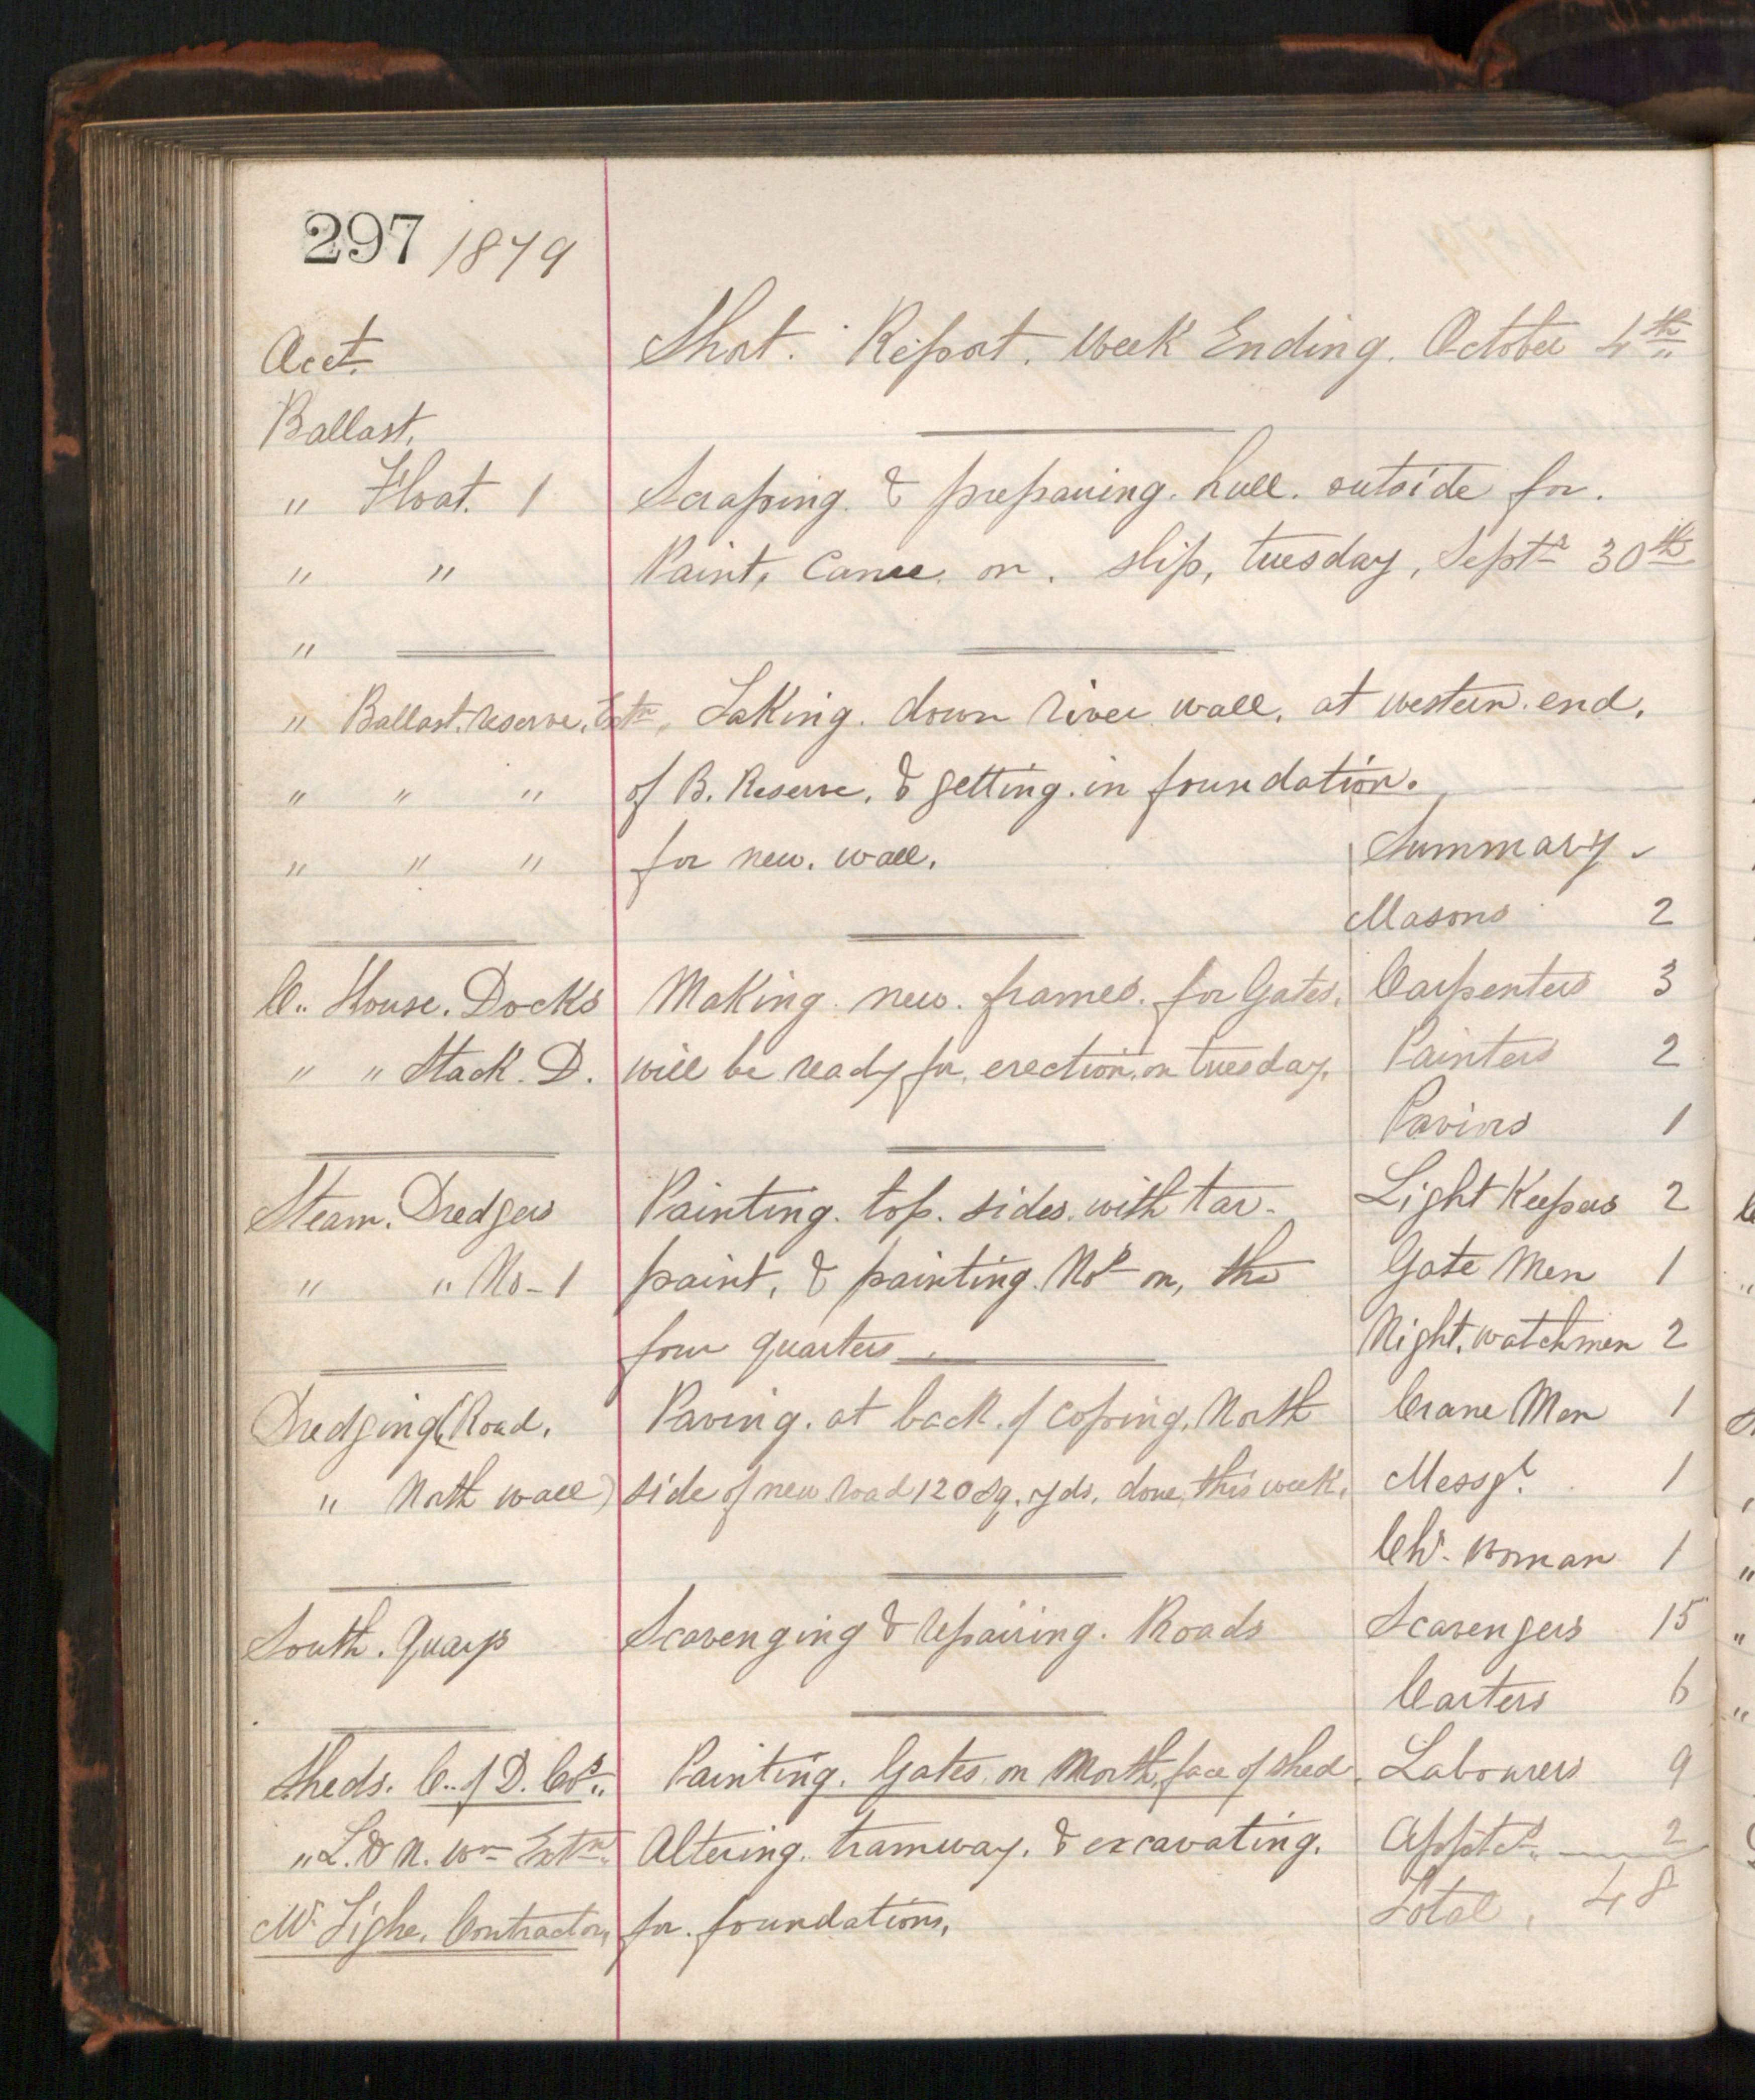 297 1879
Acct. Short. Report. Week Ending. October 4th
Ballast.
" Float. 1 Scraping. & preparing. hull. outside for.
" " Paint, Came on. slip, tuesday, Septr 30th
"
" Ballast. Reserve. Extn. Taking. down river wall. at western. end.
" " " of B. Reserve. & getting. in foundation.
" " " for new. wall. Summary
Masons 2
C.. House. Docks Making. new. frames. for Gates. Carpenters 3
" " Stack. D. will be ready for erection. on tuesday. Painters 2
Paviors 1
Steam. Dredgers Painting. top. sides. with tar- Light Keepers 2
" " No-1 paint, & painting. Nos on, the Gate Men 1
four quarters. Night. watchmen 2
Dredging (Road. Paving. at back. of coping. North Crane Men 1
" North wall) side of new road 120 sq. yds. done, this week. Messgr. 1
Chr. Woman 1
South. Quays Scavenging & repairing. Roads Scavengers 15
Carters 6
Sheds. C.. of D. Co.. Painting. Gates. on North. face of shed Labourers 9
" L. & N. Wn Extn. Altering. tramway. & excavating. Apptcs. 2
Mr. Tighe. Contractor, for. foundations. Total. 48